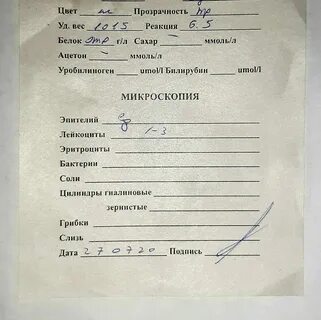 Цвет Прозрачность пр
Уд. вес 1015 Реакция 6.5
Белок отр г/л Сахар – ммоль/л
Ацетон – ммоль/л
Уробилиноген umol/l Билирубин umol/l
МИКРОСКОПИЯ
Эпителий ед
Лейкоциты 1-3
Эритроциты
Бактерии
Соли
Цилиндры гиалиновые
зернистые
Грибки
Слизь
Дата 270720 Подпись